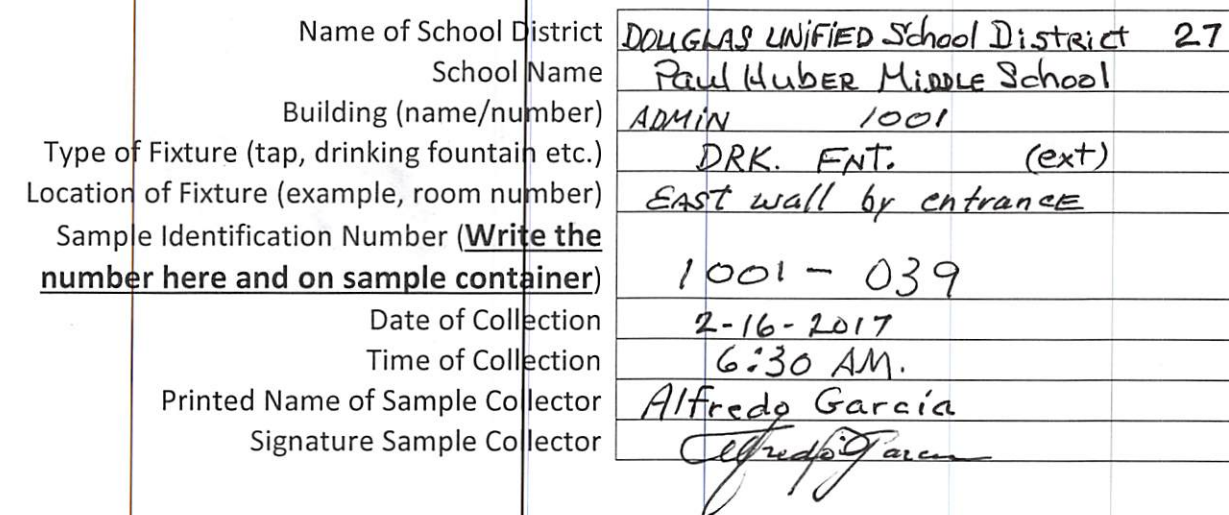 Name of School District DOUGLAS UNiFiED School DistRict 27
School Name Paul HubER MiDDLE School
Building (name/number) ADMiN 1001
Type of Fixture (tap, drinking fountain etc.) DRK. FNT. (ext)
Location of Fixture (example, room number) EAST wall by entrancE
Sample Identification Number (Write the
number here and on sample container) 1001 - 039
Date of Collection 2-16-2017
Time of Collection 6:30 AM.
Printed Name of Sample Collector Alfredo Garcia
Signature Sample Collector Alfredo Garcia